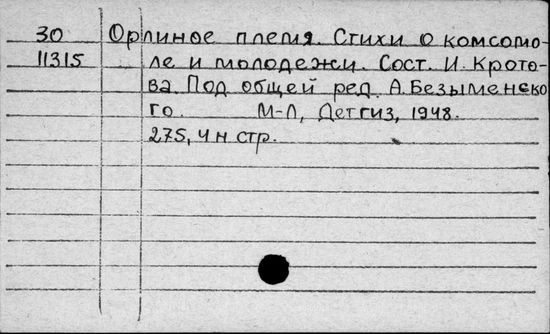 30 Орлиное племя. Стихи о комсомо-
11315 ле и молодежи. Сост. И. Крото-
ва. Под общей ред. А. Безыменско
го. М-Л, Детгиз, 1948.
275, 4 н стр.